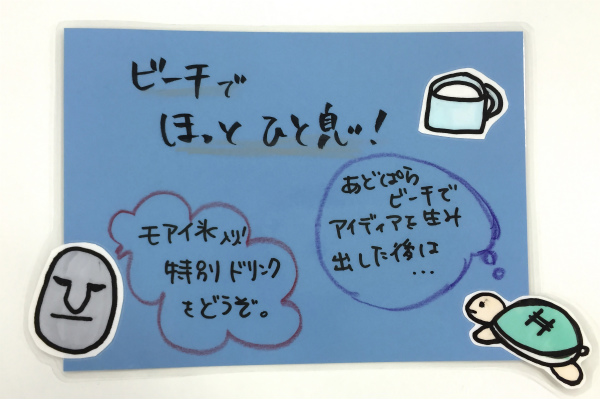 ビーチで
ほっと ひと息！
あどぱら
ビーチで
アイディアを生み
出した後は
...
モアイ氷入り！
特別ドリンク
をどうぞ。